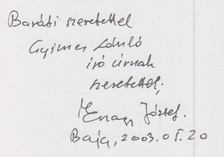 Baráti szeretettel
Gyimes László
író úrnak
szeretettel,
József.
Baja, 2003.05.20